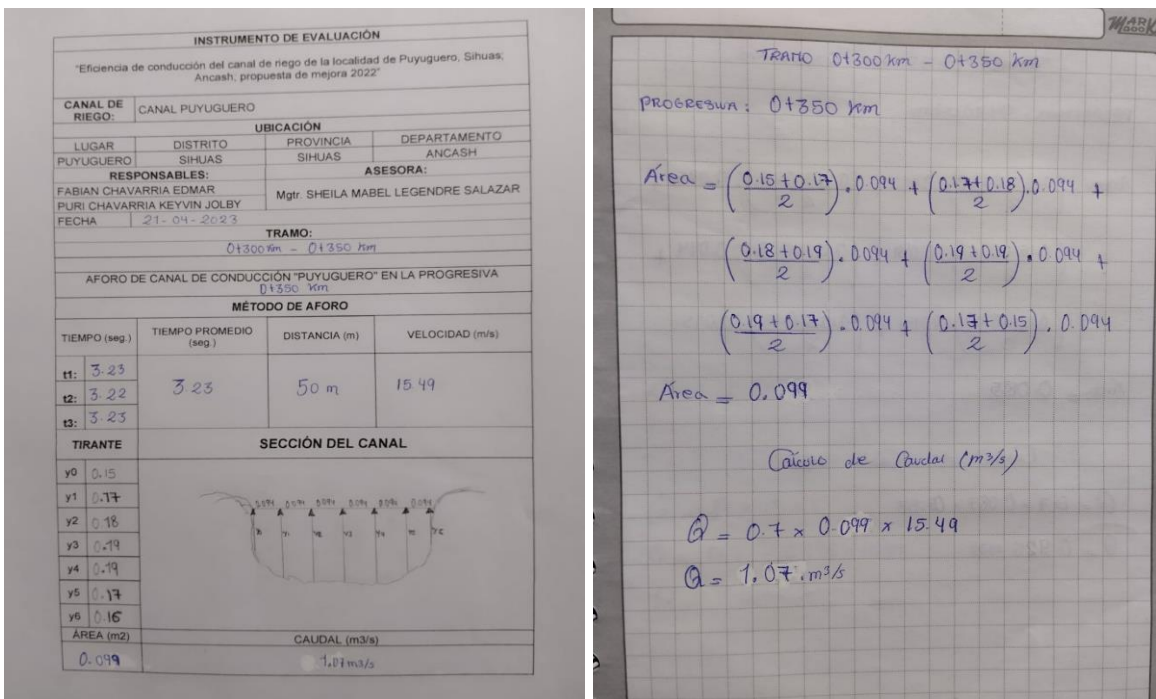 INSTRUMENTO DE EVALUACIÓN
"Eficiencia de conducción del canal de riego de la localidad de Puyuguero, Sihuas;
Ancash, propuesta de mejora 2022"
CANAL DE RIEGO: CANAL PUYUGUERO
UBICACIÓN
LUGAR DISTRITO PROVINCIA DEPARTAMENTO
PUYUGUERO SIHUAS SIHUAS ANCASH
RESPONSABLES: ASESORA:
FABIAN CHAVARRIA EDMAR
PURI CHAVARRIA KEYVIN JOLBY
Mgtr. SHEILA MABEL LEGENDRE SALAZAR
FECHA 21-04-2023
TRAMO:
0+300 km - 0+350 km
AFORO DE CANAL DE CONDUCCIÓN "PUYUGUERO" EN LA PROGRESIVA
0+350 km
MÉTODO DE AFORO
TIEMPO (seg.) TIEMPO PROMEDIO (seg.) DISTANCIA (m) VELOCIDAD (m/s)
t1: 3.23
t2: 3.22
t3: 3.23
3.23 50 m 15.49
TIRANTE SECCIÓN DEL CANAL
y0 0.15
y1 0.17
y2 0.18
y3 0.19
y4 0.19
y5 0.17
y6 0.16
0.094 0.094 0.094 0.094 0.094 0.094
ÁREA (m2) CAUDAL (m3/s)
0.099 1.07 m3/s
TRAMO 0+300 km - 0+350 km
PROGRESIVA: 0+350 km
Área = (0.15+0.17/2).0.094 + (0.17+0.18/2).0.094 +
(0.18+0.19/2).0.094 + (0.19+0.19/2).0.094 +
(0.19+0.17/2).0.094 + (0.17+0.15/2).0.094
Área = 0.099
Cálculo de Caudal (m3/s)
Q = 0.7 x 0.099 x 15.49
Q = 1.07 m3/s